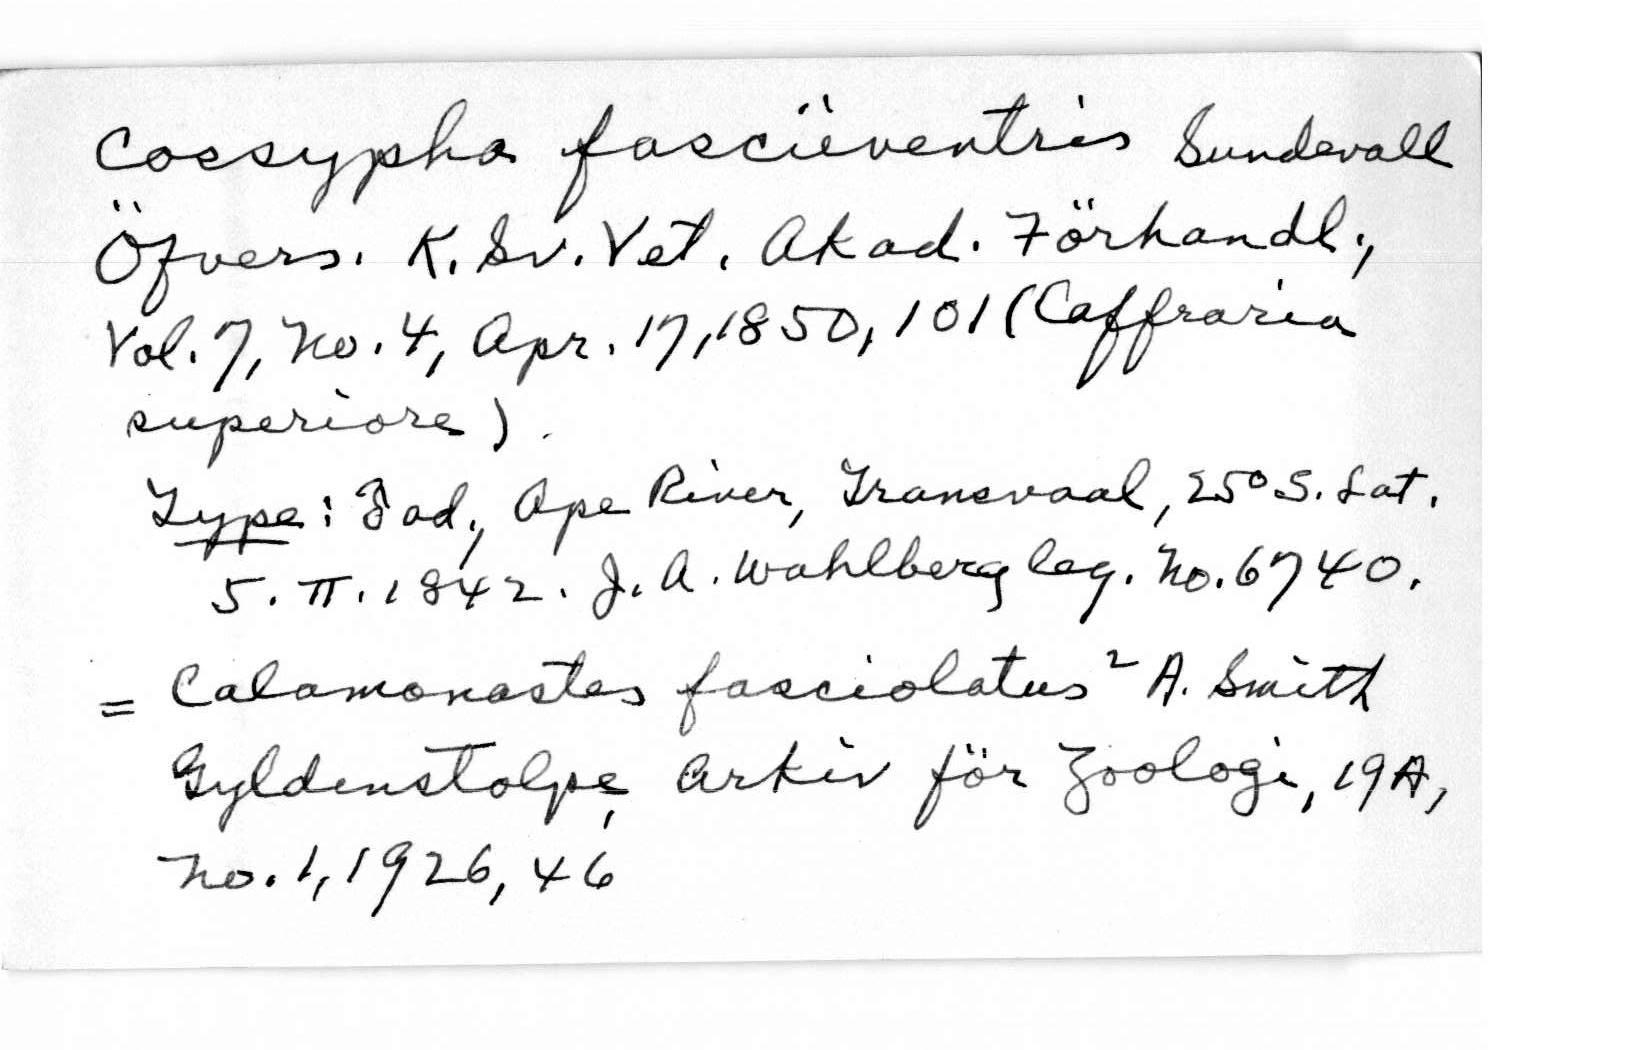 Cossypha fasciiventris Sundevall
Öfvers. K. Sv. Vet. Akad. Förhandl.,
Vol. 7, No. 4, Apr. 17, 1850, 101 (Caffraria
superiore).
Type: ♂ ad., Ape River, Transvaal, 25° S. Lat.
5. II. 1842. J. A. Wahlberg leg. No. 6740.
= Calamonastes fasciolatus ² A. Smith
Gyldenstolpe, Arkiv för Zoologi, 19A,
No. 1, 1926, 46